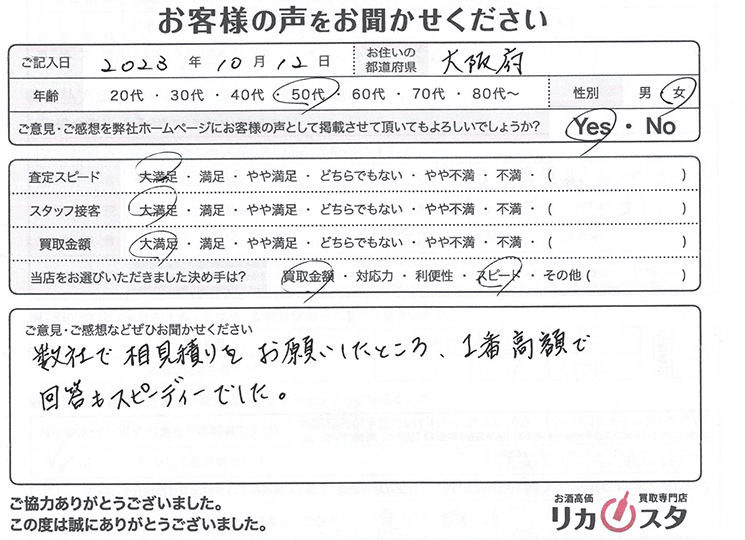 お客様の声をお聞かせください
ご記入日 2023 年 10 月 12 日 お住いの都道府県 大阪府
年齢 20代・30代・40代・50代・60代・70代・80代～ 性別 男・女
ご意見・ご感想を弊社ホームページにお客様の声として掲載させて頂いてもよろしいでしょうか? Yes・No
査定スピード 大満足・満足・やや満足・どちらでもない・やや不満・不満・( )
スタッフ接客 大満足・満足・やや満足・どちらでもない・やや不満・不満・( )
買取金額 大満足・満足・やや満足・どちらでもない・やや不満・不満・( )
当店をお選びいただきました決め手は? 買取金額・対応力・利便性・スピード・その他( )
ご意見・ご感想などぜひお聞かせください
数社で相見積りをお願いしたところ、1番高額で
回答もスピーディーでした。
ご協力ありがとうございました。
この度は誠にありがとうございました。
お酒高価 買取専門店
リカスタ